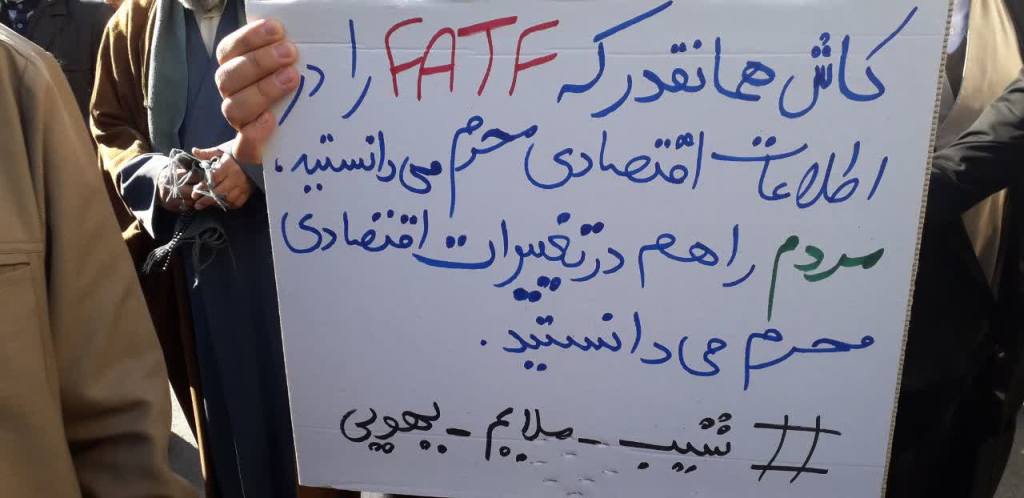 کاش همانقدر که FATF را در
اطلاعات اقتصادی محرم می دانستید،
مردم را هم در تغییرات اقتصادی
محرم می دانستید.
# شیب_ملایم_یهویی